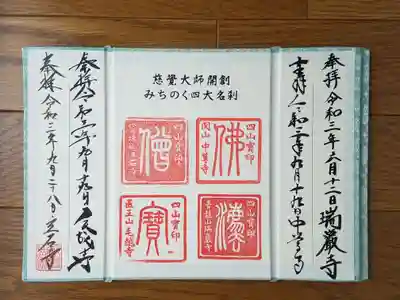 奉拝 令和三年六月十二日 瑞巌寺
奉拝 令和三年九月十九日 中尊寺
慈覺大師開創
みちのく四大名刹
四山寶印
佛
関山 中尊寺
四山寶印
僧
四山寶印
灋
青龍山 瑞巌寺
四山寶印
寶
医王山 毛越寺
奉拝 令和三年九月十九日 毛越寺
奉拝 令和三年九月二十八日 立石寺